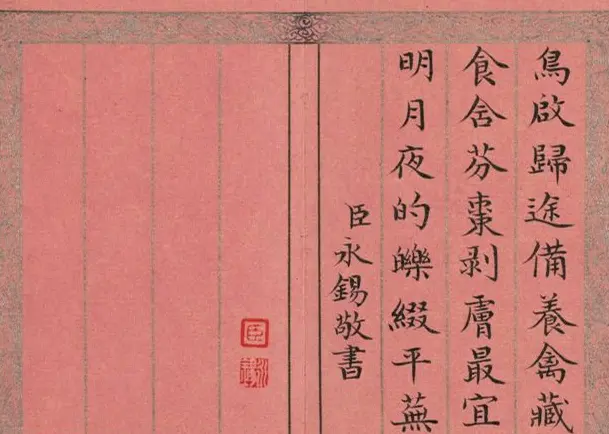 鳥啟歸途備養禽藏
食含芬棗剥膚最宜
明月夜的皪綴平蕪
臣永錫敬書
臣